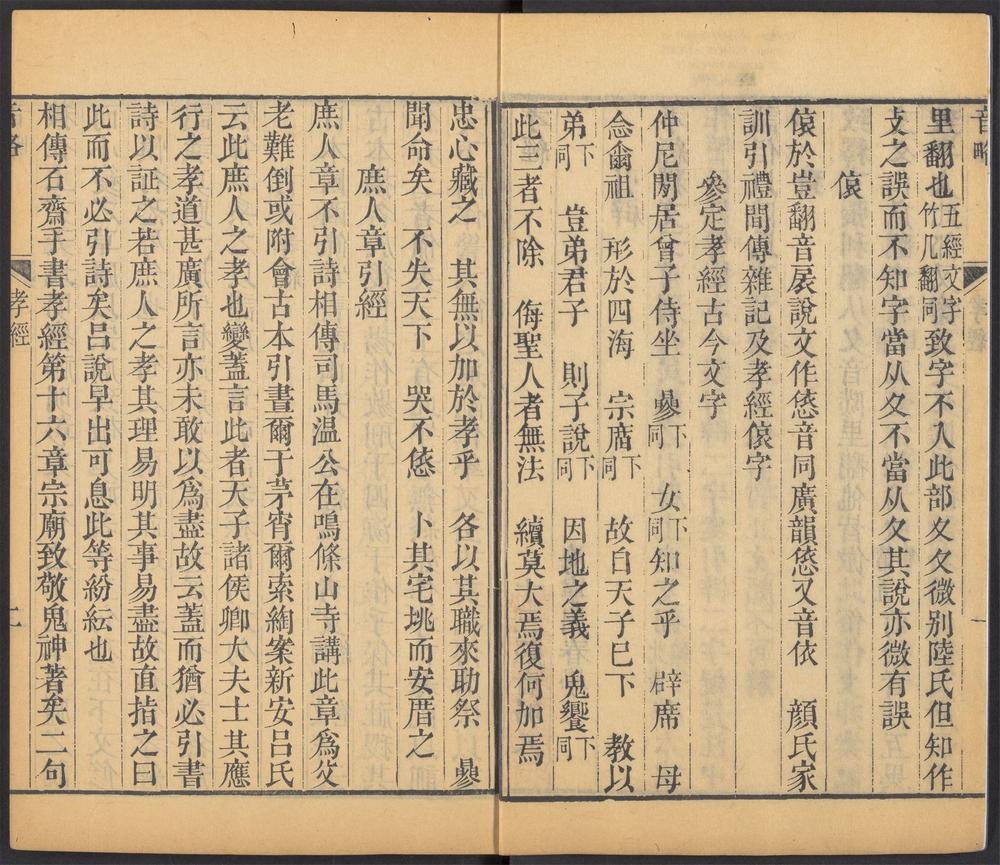 音略
里翻也五經文字竹几翻同致字不入此部夊夂微別陸氏但知作
攴之誤而不知字當从夊不當从夂其說亦微有誤
偯
偯於豈翻音扆說文作㥋音同廣韻㥋又音依　顔氏家
訓引禮間傳雜記及孝經偯字
參定孝經古今文字
仲尼閒居曾子侍坐　曑下同　女下同知之乎　辟席　毋
念尒祖　形於四海　宗廗下同　故自天子已下　教以
弟下同　豈弟君子　則子說下同　因地之義　鬼饗下同
此三者不除　侮聖人者無法　續莫大焉復何加焉
忠心藏之　其無以加於孝乎　各以其職來助祭　曑
聞命矣　不失天下　哭不㥋　卜其宅垗而安厝之
庶人章引經
庶人章不引詩相傳司馬温公在鳴條山寺講此章爲父
老難倒或附會古本引晝爾于茅宵爾索綯案新安吕氏
云此庶人之孝也變蓋言此者天子諸侯卿大夫士其應
行之孝道甚廣所言亦未敢以爲盡故云蓋而猶必引書
詩以証之若庶人之孝其理易明其事易盡故直指之曰
此而不必引詩矣吕說早出可息此等紛紜也
相傳石齋手書孝經第十六章宗廟致敬鬼神著矣二句
孝經